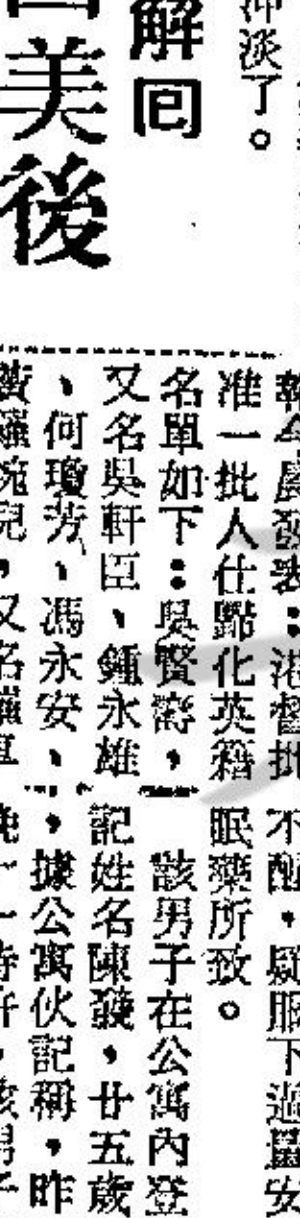 沖淡了。
解回
美後
報今晨發表：港督批
准一批人仕歸化英籍
名單如下：吳賢濤，
又名吳軒臣、鍾永雄
、何瓊芳、馮永安、
黃羅婉兒，又名羅
不醒，疑服下過量安
眠藥所致。
該男子在公寓內登
記姓名陳發，廿五歲
，據公寓伙記稱，昨
晚十一時許，該男子